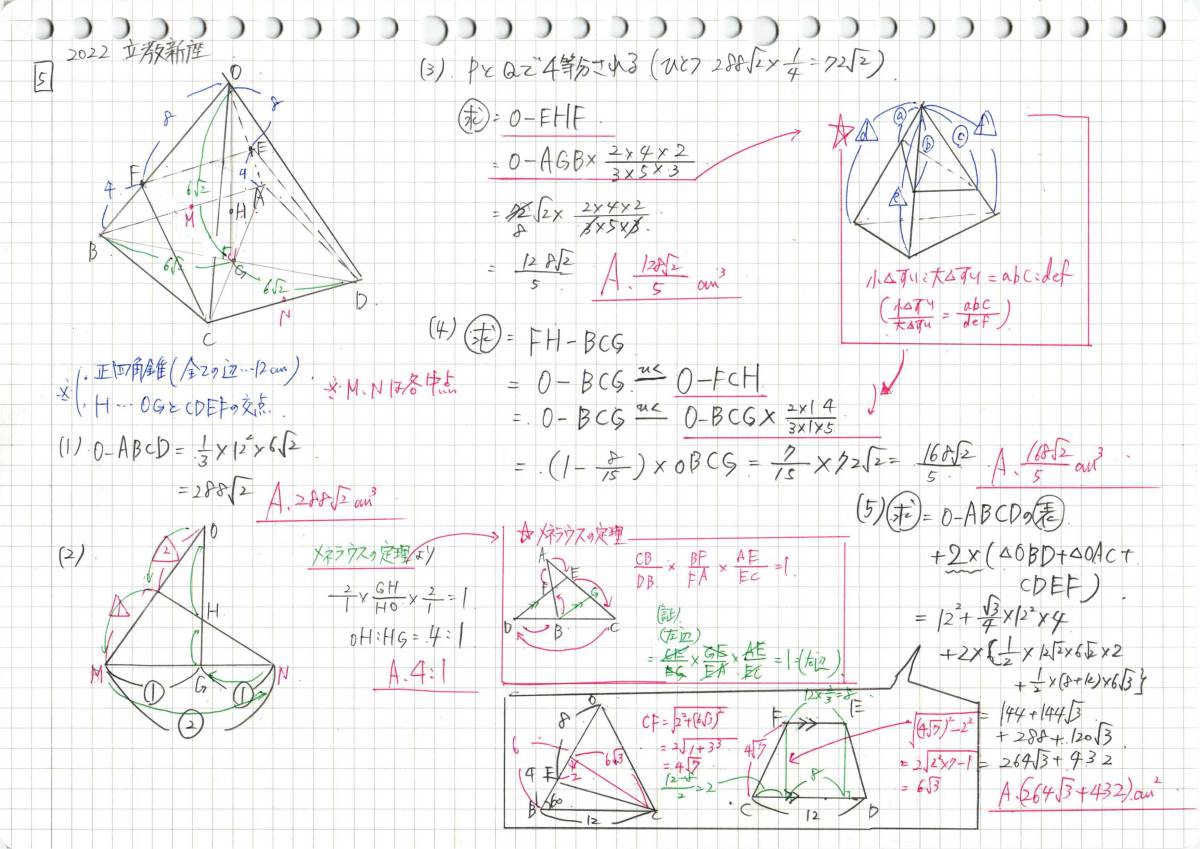 2022 立教新座
5
O
8
8
F
E
4
4
6√2
A
M
H
B
G
6√2
6√2
D
N
C
※
・正四角錐(全ての辺…12cm)
・H…OGとCDEFの交点
※M、Nは各中点
(1) O-ABCD = 1/3 × 12² × 6√2
= 288√2
A. 288√2 cm³
(2)
O
2
1
H
M
G
N
①
①
②
メネラウスの定理より
2/1 × GH/HO × 2/1 = 1
OH:HG = 4:1
A. 4:1
☆メネラウスの定理
A
F
E
G
D
B
C
CB/DB × BF/FA × AE/EC = 1
(証)
(左辺)
= CE/EG × GE/EA × AE/EC = 1 = (右辺)
(3). PとQで4等分される (ひとつ 288√2 × 1/4 = 72√2)
求 = O-EHF
= O-AGB × 2×4×2/3×5×3
= 72√2 × 2×4×2/3×5×3
8
= 128√2/5
A. 128√2/5 cm³
☆
a
b
c
d
e
f
小△すい:大△すい = abc:def
(小△すい/大△すい = abc/def)
(4) 求 = FH-BCG
= O-BCG ひく O-FCH
= O-BCG ひく O-BCG × 2×1×4/3×1×5
= (1 - 8/15) × OBCG = 7/15 × 72√2 = 168√2/5
A. 168√2/5 cm³
(5) 求 = O-ABCDの表
+2×(△OBD+△OAC+
CDEF)
= 12² + √3/4 × 12² × 4
+2×{1/2 × 12√2 × 6√2 × 2
+ 1/2 × (8+12) × 6√3}
= 144 + 144√3
+ 288 + 120√3
= 264√3 + 432
A. (264√3+432) cm²
O
8
6
6√3
4
F
2
B
60
C
12
CF = √2²+(6√3)²
= 2√1+3³
= 4√7
12-8/2 = 2
12×2/3=8
F
E
4√7
8
C
D
12
√(4√7)²-2²
= 2√2²×7-1
= 6√3